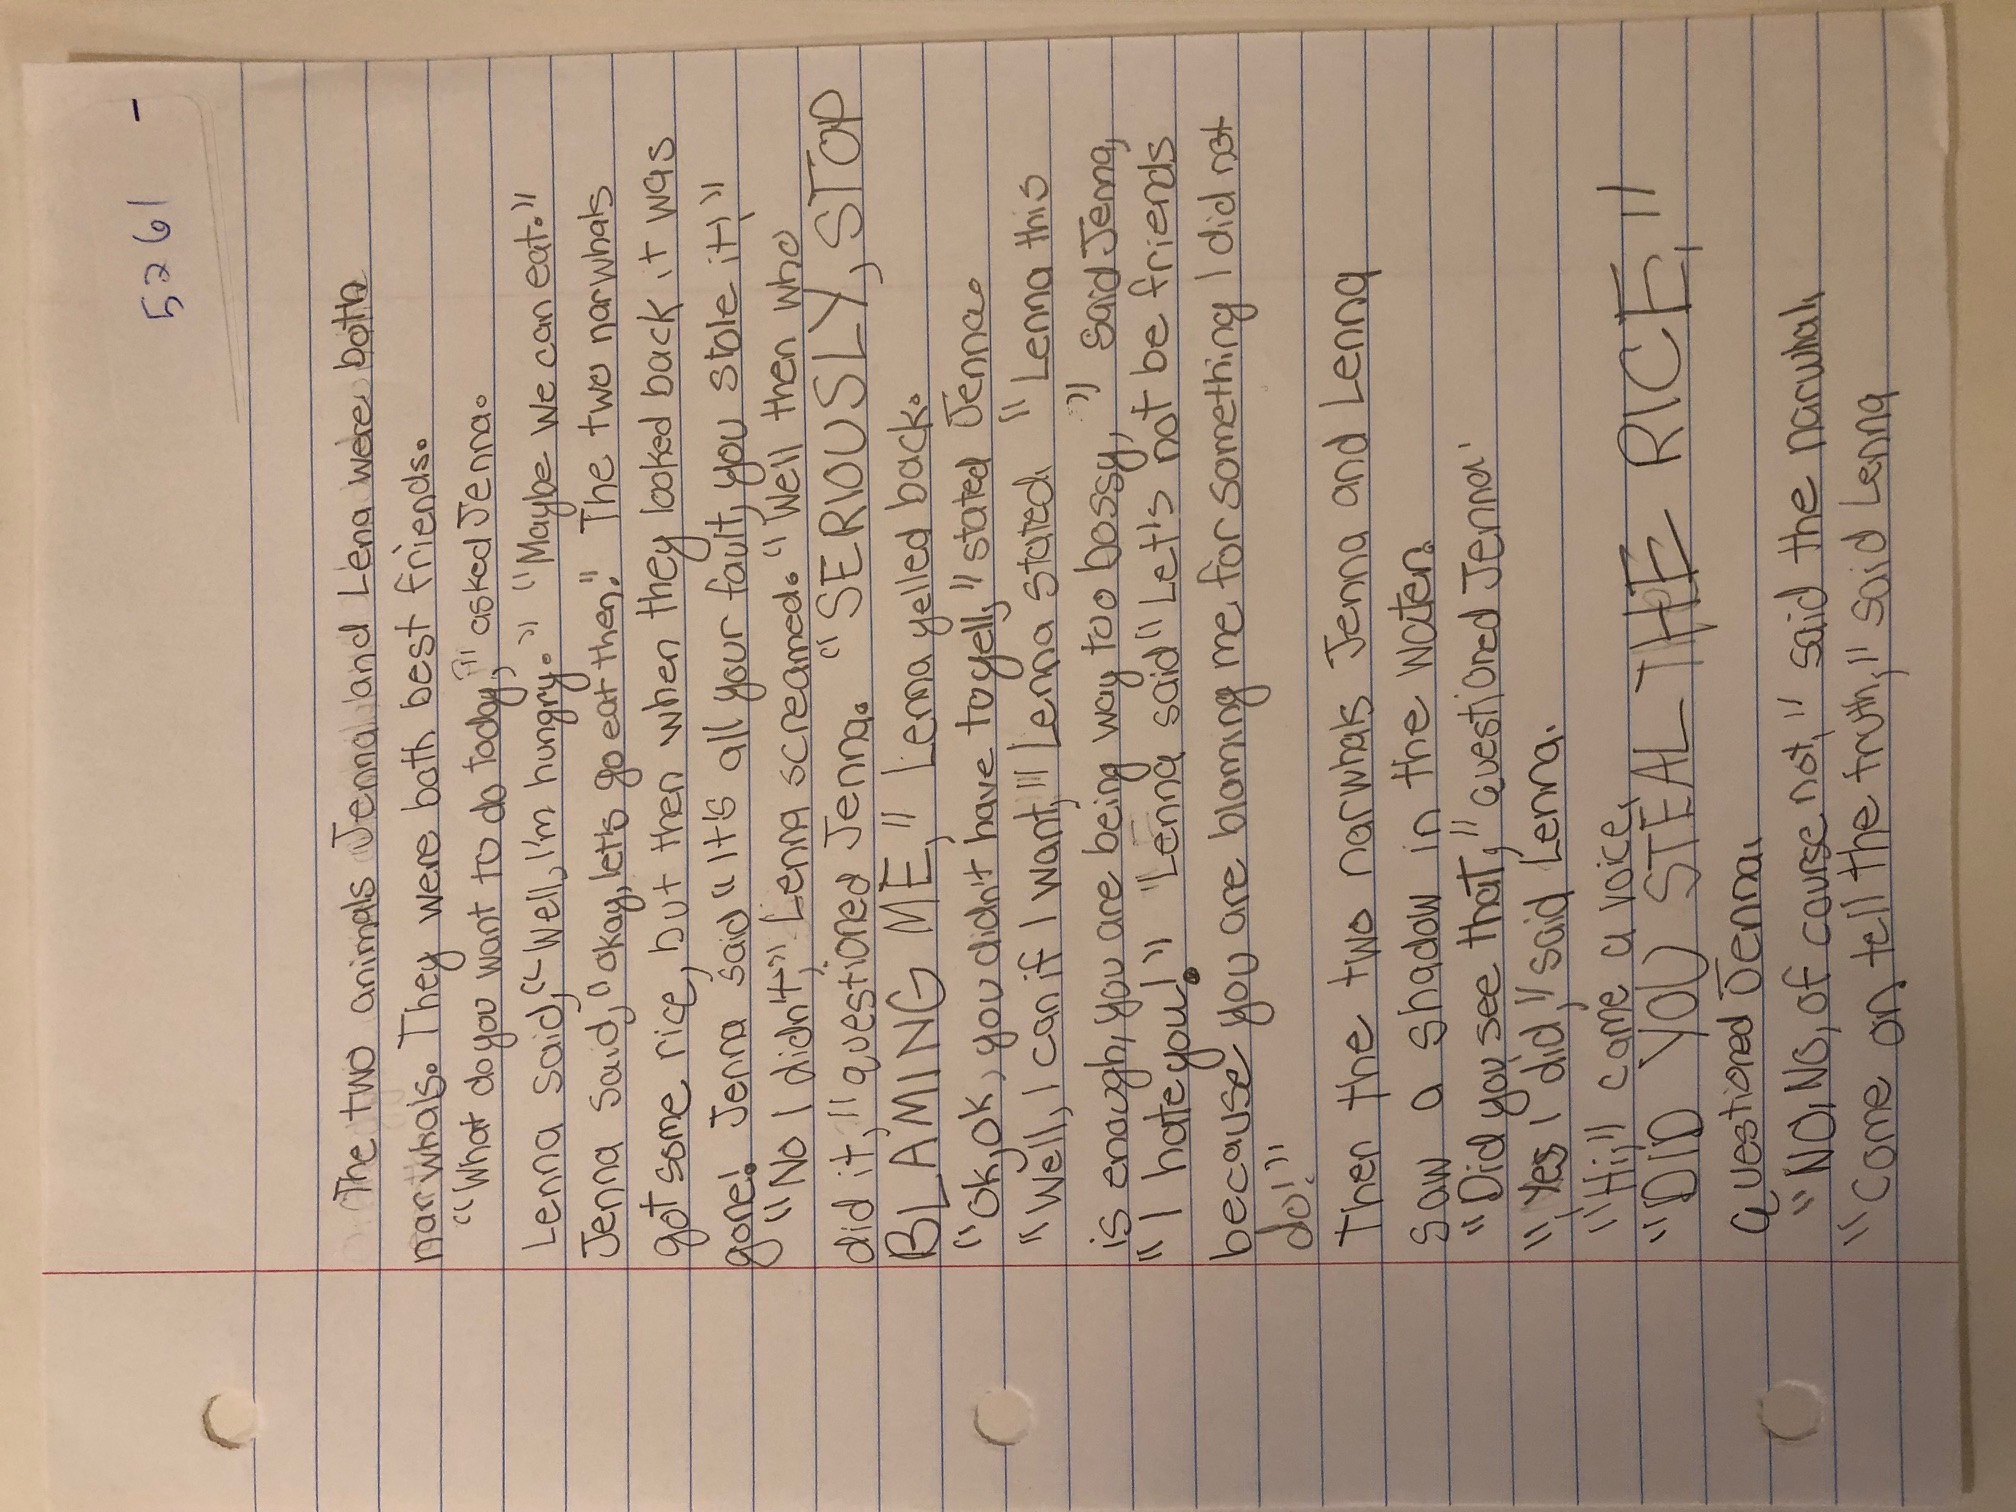 5261 -
The two animals Jenna and Lena were both
narwhals. They were both best friends.
"What do you want to do today," asked Jenna.
Lenna said, "Well, I'm hungry." "Maybe we can eat."
Jenna said, "okay, let's go eat then." The two narwhals
got some rice, but then when they looked back it was
gone! Jenna said "It's all your fault, you stole it!"
"No I didn't," Lenna screamed. "Well then who
did it," questioned Jenna. "SERIOUSLY, STOP
BLAMING ME," Lenna yelled back.
"Ok, ok, you didn't have to yell," stated Jenna.
"Well, I can if I want," Lenna stated. "Lenna this
is enough, you are being way too bossy," said Jenna,
"I hate you!" "Lenna said "Let's not be friends
because you are blaming me for something I did not
do!"
Then the two narwhals Jenna and Lenna
saw a shadow in the water.
"Did you see that," questioned Jenna.
", Yes I did," said Lenna.
"Hi," came a voice.
"DID YOU STEAL THE RICE,"
questioned Jenna.
"NO, NO, of course not," said the narwhal.
"Come on tell the truth," said Lenna